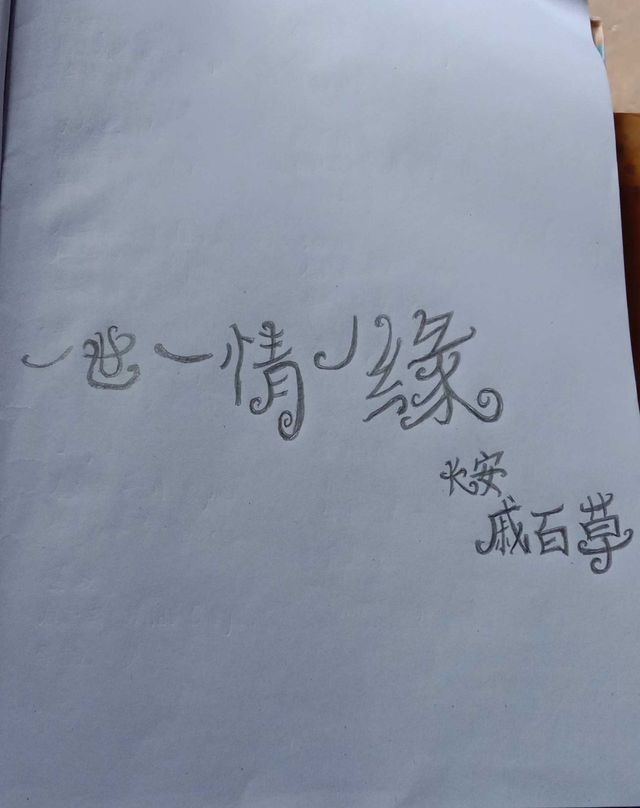 一世一情缘
长安
戚百草